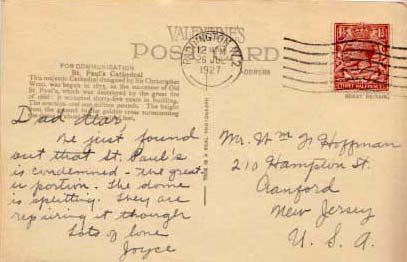 VALENTINE'S
POSTCARD
FOR COMMUNICATION
ADDRESS
St. Paul's Cathedral
This majestic Cathedral designed by Sir Christopher
Wren, was begun in 1675, as the successor of Old
St. Paul's, which was destroyed by the great fire
of 1666: it occupied thirty-five years in building.
The erection cost one million pounds. The height
PADDINGTON. W.2
12 PM
26 JUL
1927
THREE HALFPENCE
GREAT BRITAIN.
THIS IS A REAL PHOTOGRAPH
Dad dear,
We just found
out that St. Paul's
is condemned - the great-
er portion. The dome
is splitting. They are
repairing it though
Lots of love
Joyce
Mr. Wm J. Hoffman
210 Hampton St.
Cranford
New Jersey
U. S. A.